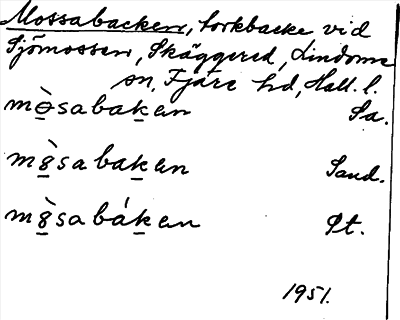 Mossabacken, torkbacke vid
Sjömossen, Skäggered, Lindome
sn, Fjäre hd, Hall. l.
mòsabaken Sa.
mòsabaken Sand.
mòsabáken Pt.
1951.